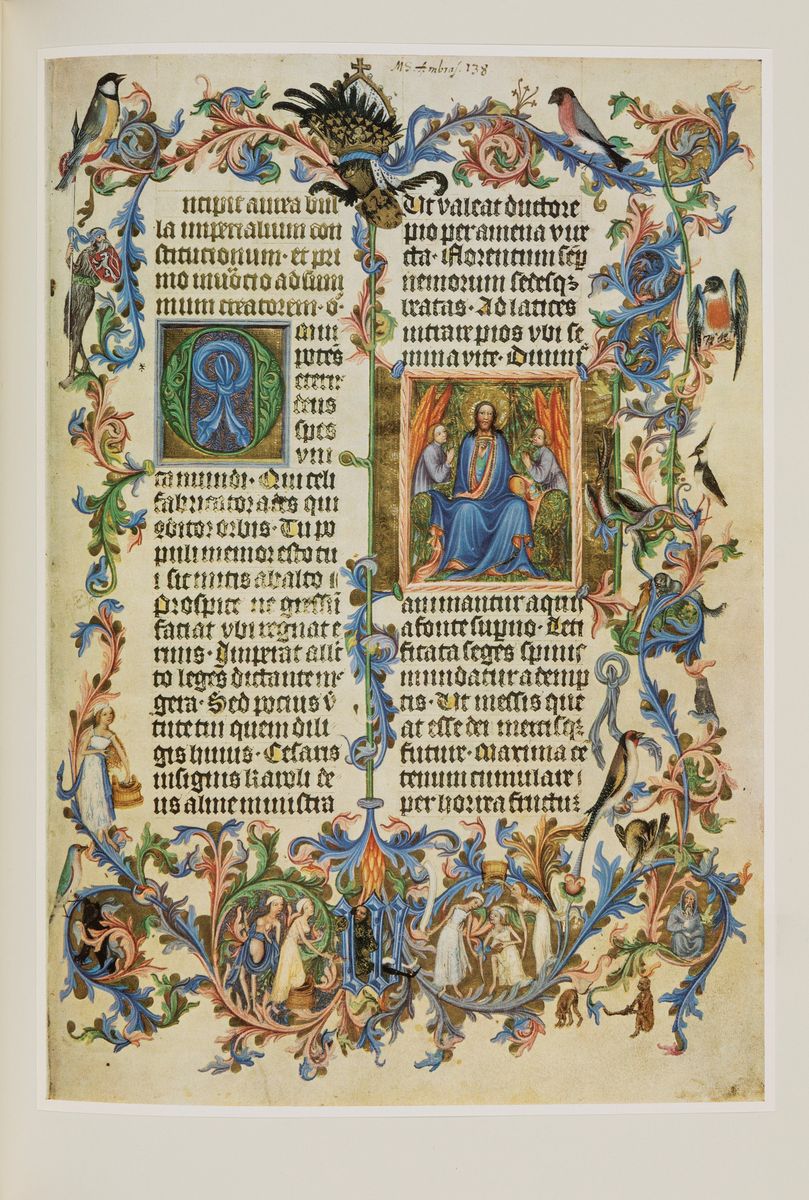 MS Ambras. 138
ncipit aurea bul
la imperialium con
stitucionum · et pri
mo inuocio ad sum
mum creatorem · o
mni
potēs
eterne
deus
spes
vni
ca mundi · Qui celi
fabricator ades qui
ɔditor orbis · Tu po
puli memor esto tu
i sic mitis ab alto
prospice ne gressū
faciat vbi regnat e
rinis · Imperat alle
to leges dictante me
gera · Sed pocius v̄
tute tui quem dili
gis huius · Cesaris
insignis karoli de
us alme ministra
Ut valeat ductore
pio per amena vire
cta · Florentum semp̄
nemorum sedesqꝫ
beatas · Ad latices
intrare pios vbi se
mina vite · Diuinis
animantur aquis
a fonte supno · Leti
ficata seges spinis
mundatur ademp
tis · Ut messis que
at esse dei mercisqꝫ
future · Maxima cē
tenum cumulare
per horrea fructū
W